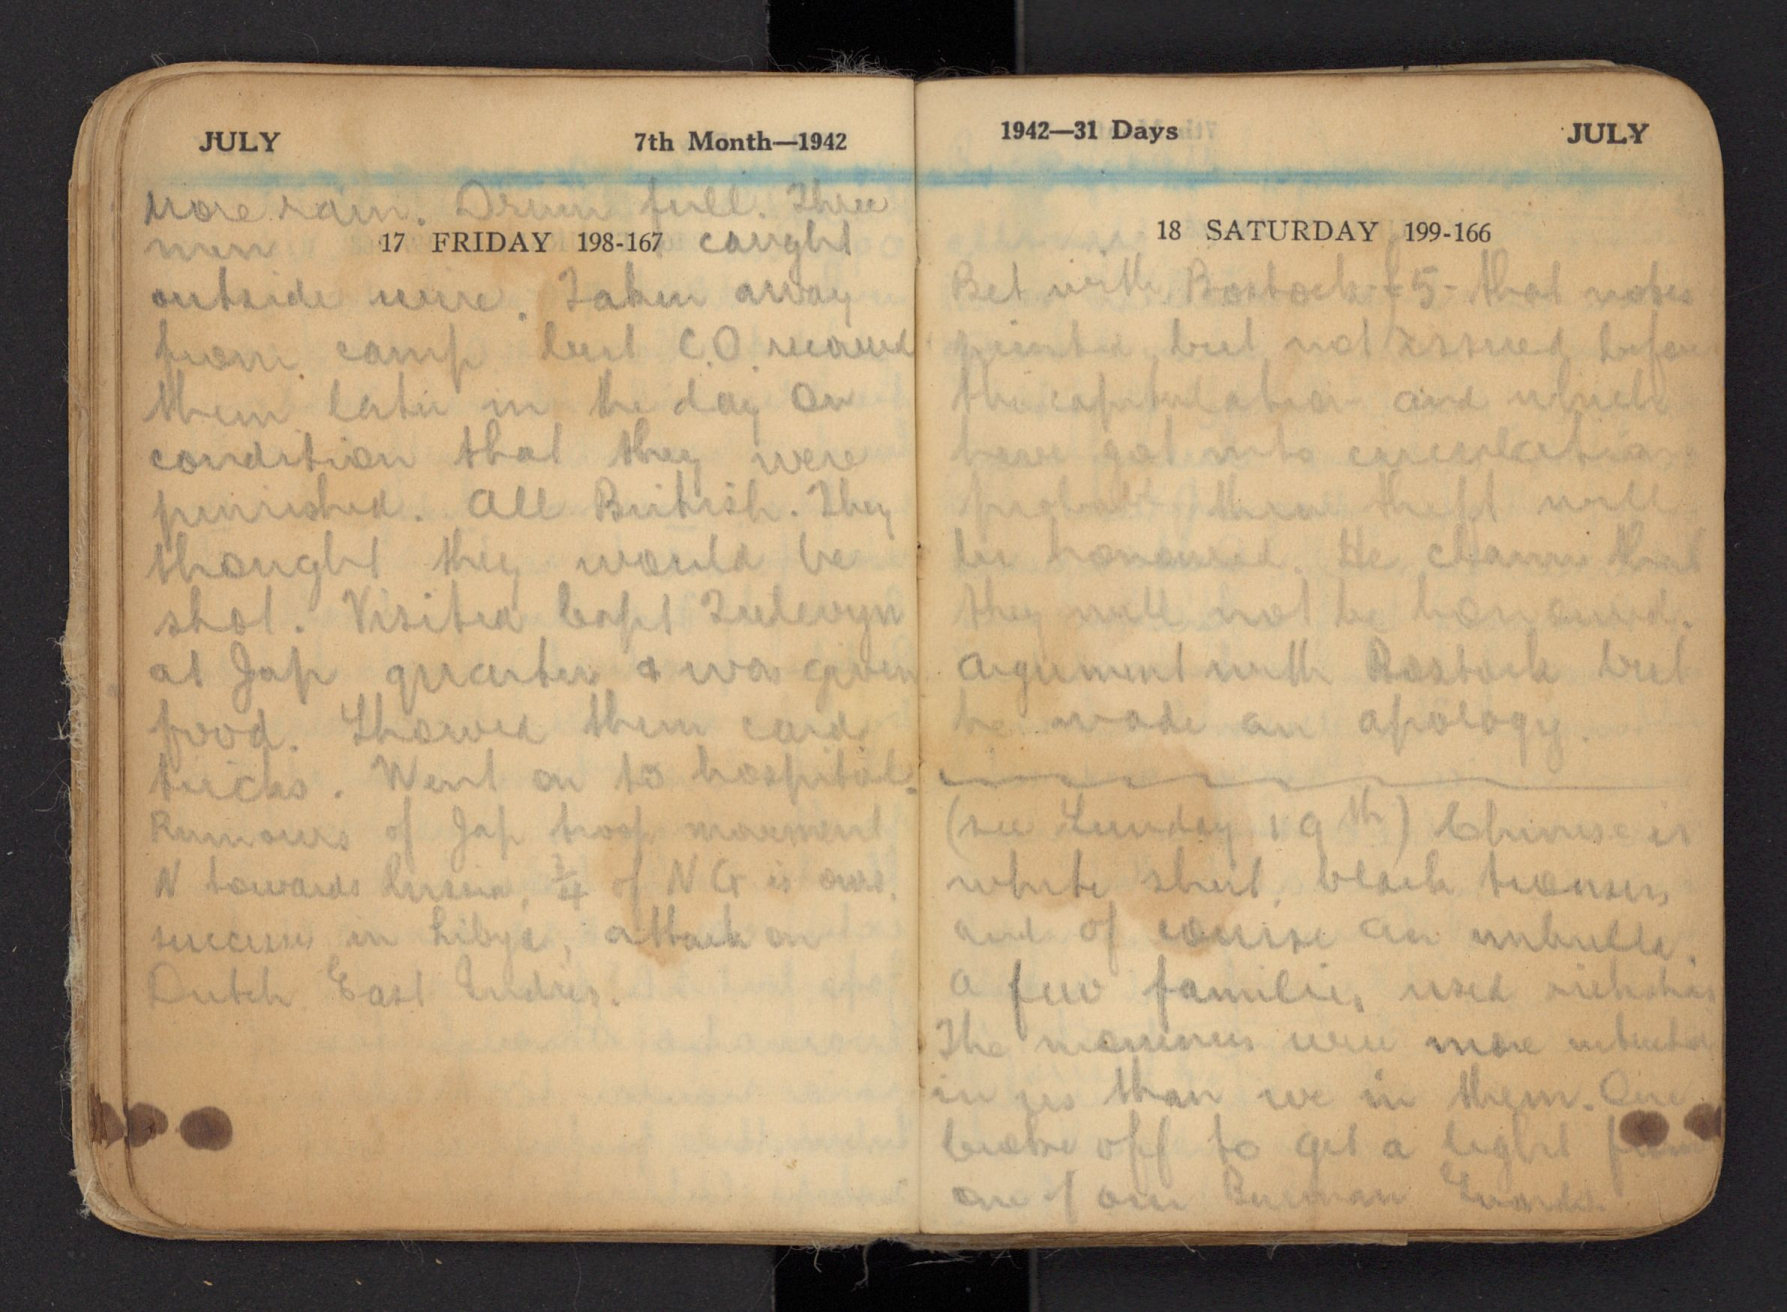 JULY 7th Month—1942
more rain. Drum full. Three
men 17 FRIDAY 198-167 caught
outside wire. Taken away
from camp but C.O. received
them later in the day on
condition that they were
punished. All British. They
thought they would be
shot. Visited Capt
at Jap quarters & was given
food. Showed them card
tricks. Went on to hospital.
Rumours of Jap troop movement
N towards Russia, ¾ of N G is ours.
success in Libya, attack on
Dutch East Indies.
1942—31 Days JULY
18 SATURDAY 199-166
Bet with Bostock £5- that notes
printed but not issued before
the capitulation and which
have got into circulation
thru theft will
be honoured. He claims that
they will not be honoured.
Argument with Bostock but
he made an apology.
(see Sunday 19th) Chinese in
white shirt, black trousers,
and of course an umbrella.
A few families used rickshas
The mourners were more interested
in us than we in them. One
broke off to get a light from
one of our Burman Guards.